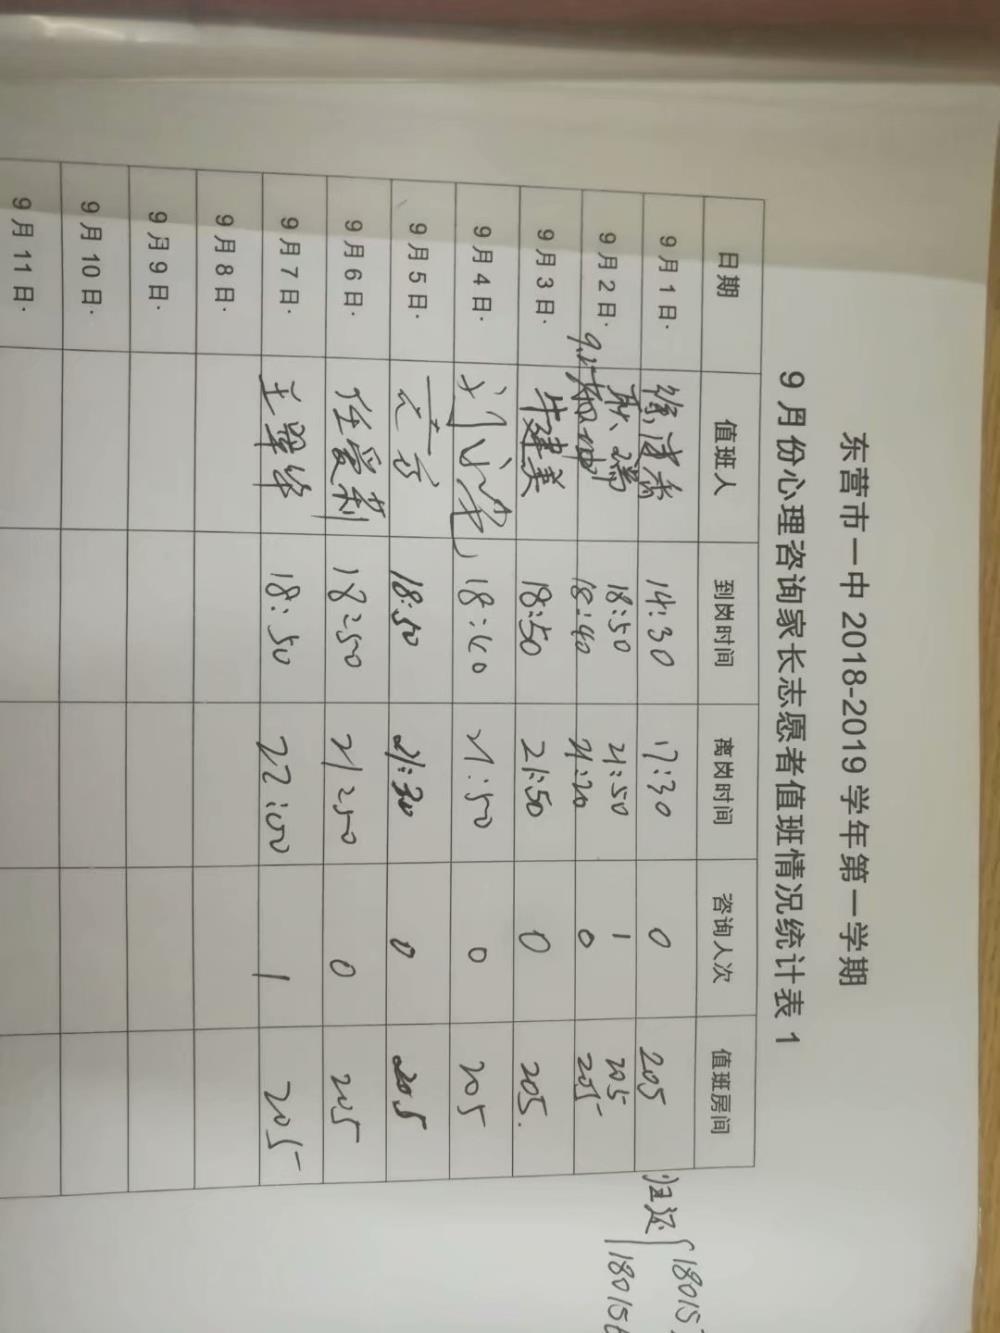 东营市一中 2018-2019 学年第一学期
9 月份心理咨询家长志愿者值班情况统计表 1
日期 值班人 到岗时间 离岗时间 咨询人次 值班房间
9 月 1 日· 14:30 17:30 0 205
归还 18015
9 月 2 日· 18:50 21:50 1 205
18015
18:40 21:20 0 205
9 月 3 日· 牛建美 18:50 21:50 0 205.
9 月 4 日· 18:40 21:50 0 205
9 月 5 日· 18:50 21:30 0 205
9 月 6 日· 任爱莉 18:50 21:50 0 205
9 月 7 日· 18:50 22:00 1 205
9 月 8 日·
9 月 9 日·
9 月 10 日·
9 月 11 日·